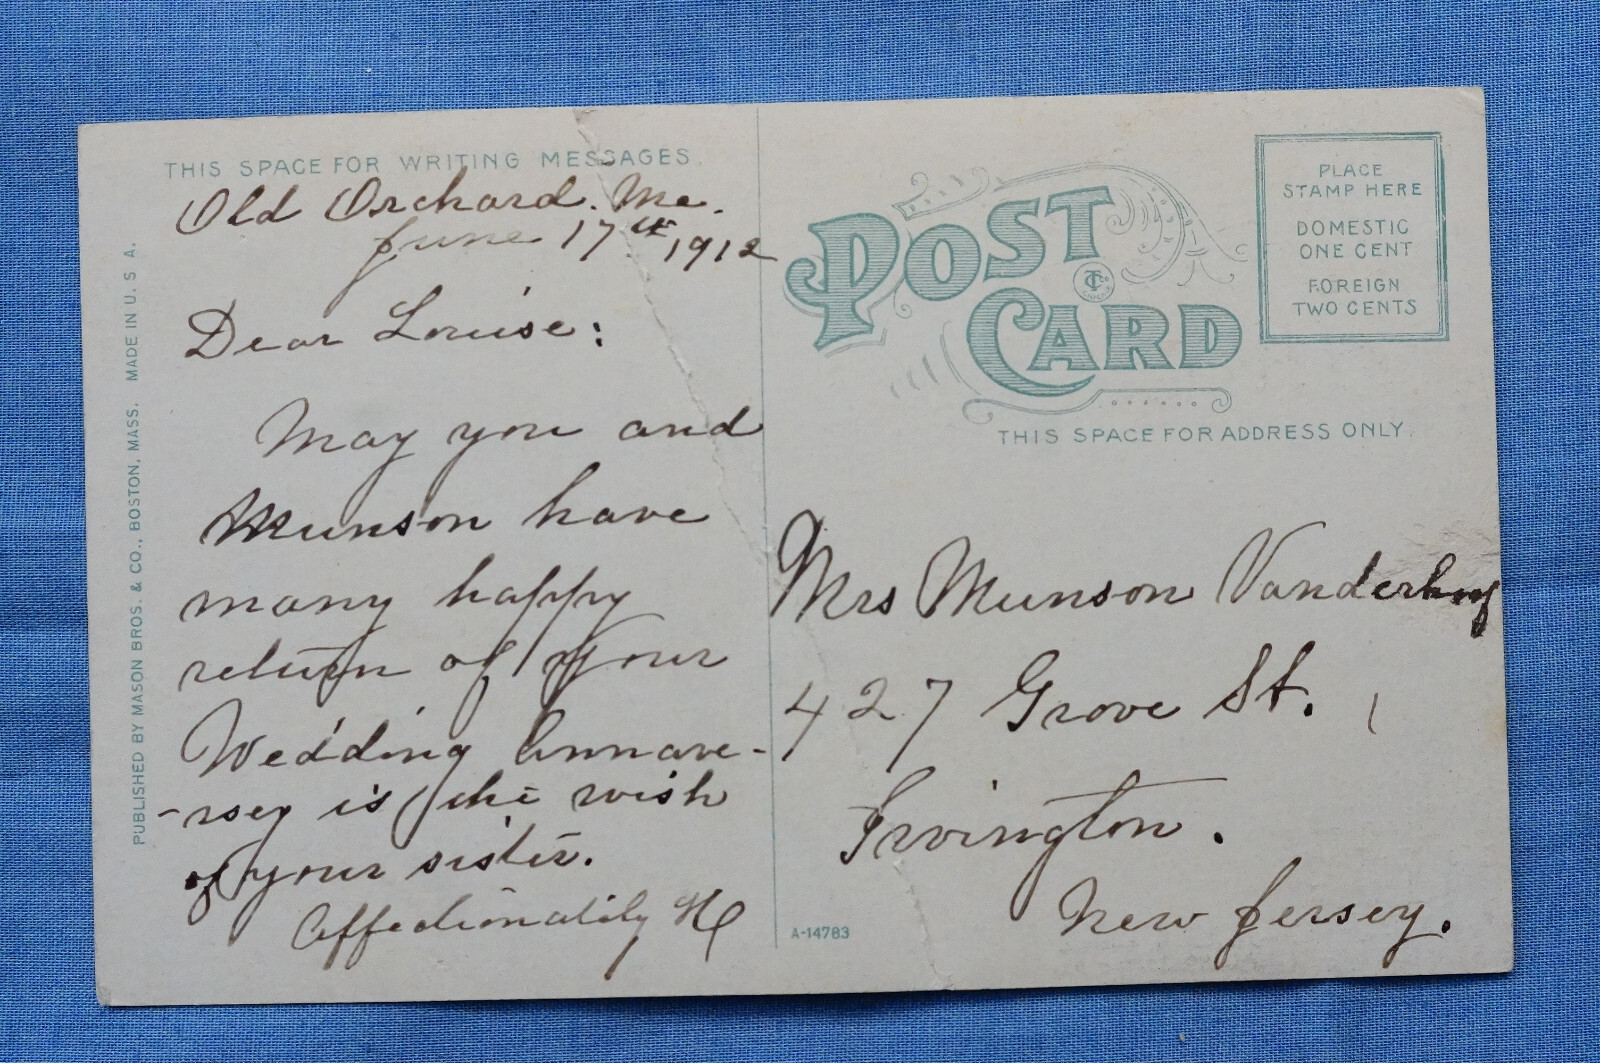 THIS SPACE FOR WRITING MESSAGES.
Old Orchard. Me.
June 17th, 1912
Dear Louise:
May you and
Munson have
many happy
return of Your
Wedding Annave-
-rsey is the wish
of your sister.
Affectionately
PUBLISHED BY MASON BROS. & CO., BOSTON, MASS. MADE IN U. S. A.
POST
CARD
PLACE
STAMP HERE
DOMESTIC
ONE CENT
FOREIGN
TWO CENTS
THIS SPACE FOR ADDRESS ONLY.
Mrs Munson
427 Grove St.
Irvington.
New Jersey.
A-14783